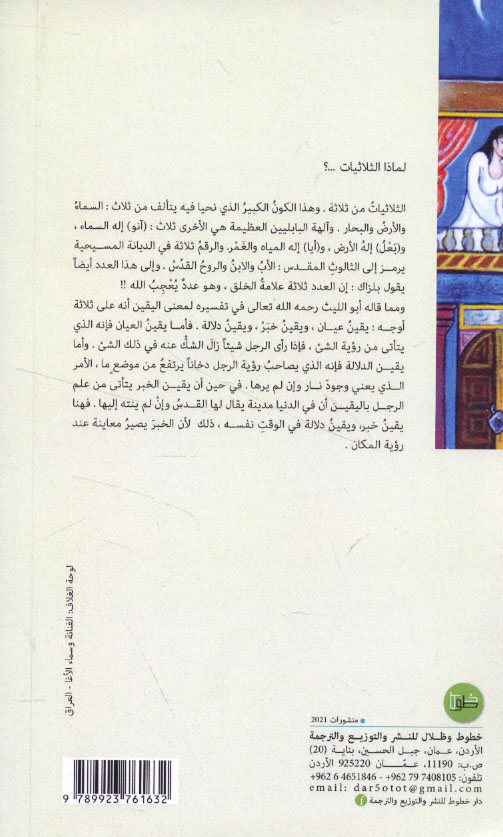 لماذا الثلاثيات ...؟
الثلاثياتُ من ثلاثة . وهذا الكونُ الكبيرُ الذي نحيا فيه يتألف من ثلاث : السماءُ
والأرضُ والبحار . وآلهة البابليين العظيمة هي الأخرى ثلاث : (آنو) إله السماء ،
و(بَعْلُ) إلهُ الأرض ، و(أيا) إله المياه والغَمْر. والرقمُ ثلاثة في الديانة المسيحية
يرمـز إلى الثالوثِ المقدس : الأبُ والابنُ والروحُ القدُسْ . وإلى هذا العدد أيضاً
يقول بلزاك : إن العدد ثلاثة علامةُ الخلق ، وهو عددٌ يُعْجِبُ الله !!
ومما قاله أبو الليث رحمه الله تعالى في تفسيره لمعنى اليقين أنه على ثلاثة
أوجـه : يقينُ عيـان ، ويقينُ خبَرْ ، ويقينُ دلالة . فأمـا يقينُ العيان فإنه الذي
يتأتى من رؤية الشئ ، فإذا رأى الرجل شيئاً زالَ الشكُّ عنه في ذلك الشئ . وأما
يقيـن الدلالة فإنه الذي يصاحبُ رؤية الرجل دخاناً يرتفعُ من موضعٍ ما ، الأمر
الـذي يعني وجودَ نـار وإن لم يرها . في حين أن يقيـن الخبر يتأتى من علم
الرجـل باليقيـن أن في الدنيا مدينة يقال لها القدسُ وإنْ لم ينته إليها . فهنا
يقينُ خبر، ويقينُ دلالة في الوقتِ نفسـه ، ذلك لأن الخبرَ يصيرُ معاينة عند
رؤية المكان .
لوحة الغلاف: الفنانة وسماء الآغا - العراق
منشورات 2021
خطوط وظلال للنشر والتوزيـع والترجمة
الأردن، عمان، جبـل الحسين، بناية (20)
ص.ب: 11190، عمّـان 925220 الأردن
تلفون: 97408105 7 962+ - 4651846 6 962+
email: dar5otot@gmail.com
دار خطوط للنشر والتوزيع والترجمة
9 789923 761632